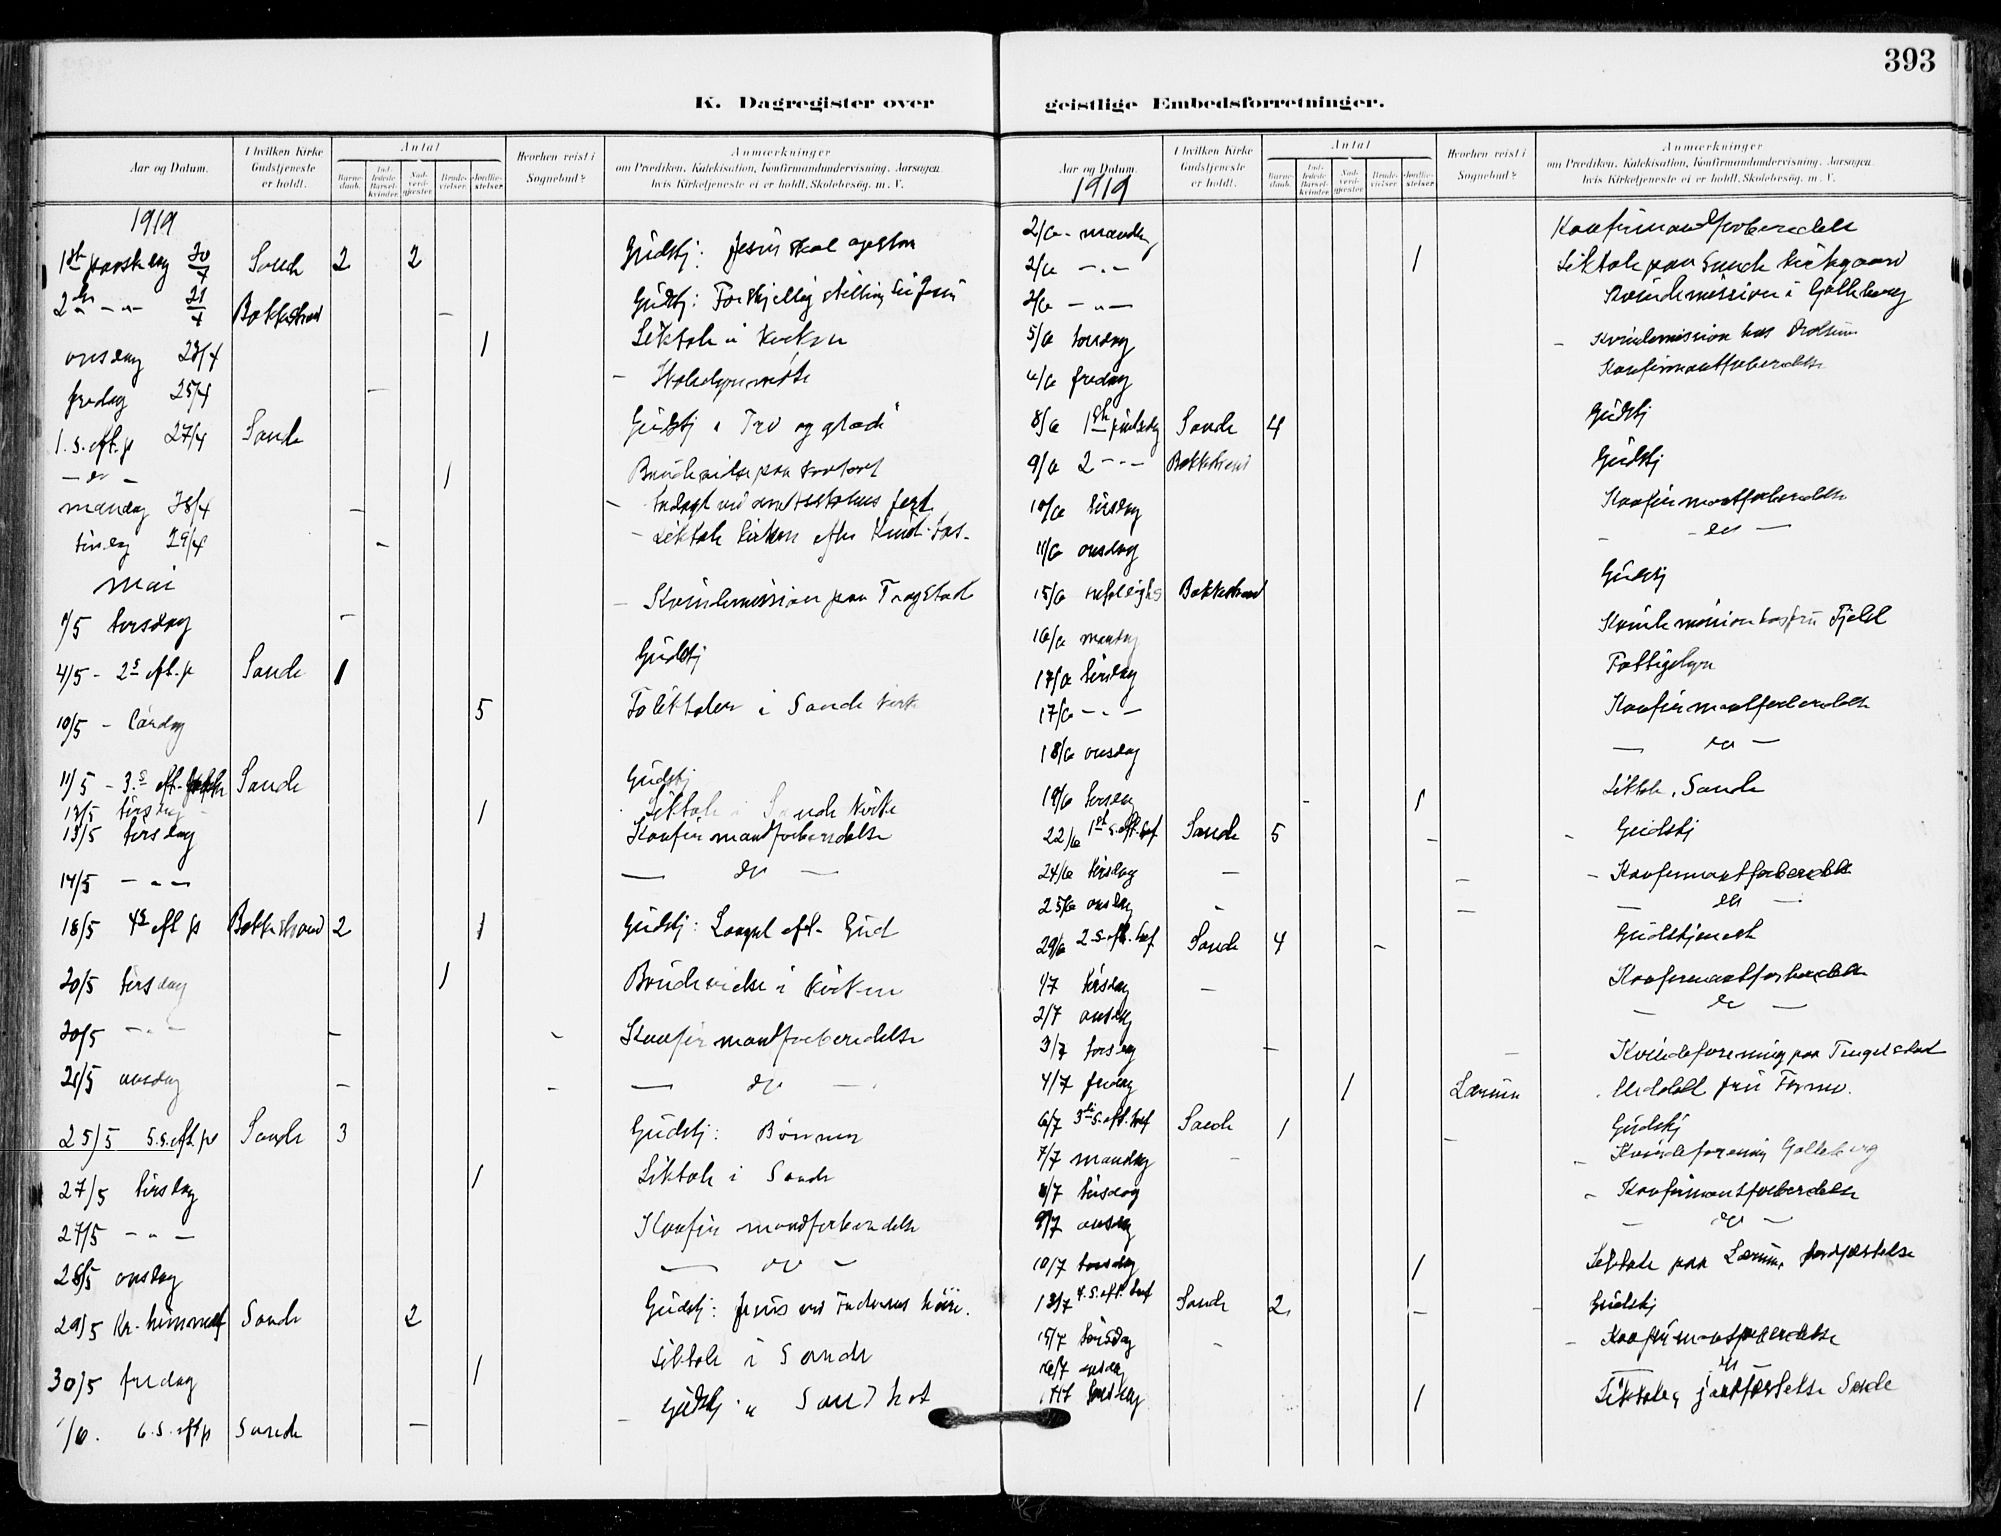 393
K. Dagregister over
Aar og Datum.
I hvilken Kirke Gudstjeneste er holdt.
Antal
Barnedaab.
Indledede Barselkvinder.
Nadverdgjester.
Brudevielser.
Jordfæstelser.
Hvorhen reist i Sognebud?
Anmærkninger
om Prædiken, Katekisation, Konfirmandundervisning, Aarsagen
hvis Kirketjeneste ei er holdt, Skolebesøg, m. V.
1919
20/4 Sande 2 2 Gudstj: Jesus skal
2den - " - 21/4 Gudstj: Forskjellig stilling til Jesus
onsdag 23/4 1 Liktale i kirken
fredag 25/4
1. s. eft. p 27/4 Sande Gudstj " Tro og glæde"
- do - 1 Brudevielse paa kontoret
mandag 28/4
tirsdag 29/4 - Liktale kirken efter
mai
1/5 torsdag - Kvindemission paa Tragstad
4/5 - 2s eft. p Sande 1 Gudstj
10/5 - lördag 5 i Sande kirke
11/5 - 3.s eft. Sande Gudstj
13/5 tirsdag 1 Liktale i Sande kirke
13/5 tirsdag Konfirmandforberedelse
14/5 - " - do -
18/5 4s eft p Bakkestrand 2 1 Gudstj: eft. Gud
20/5 tirsdag 1 Brudevielse i kirken
20/5 - " - Konfirmandforberedelse
21/5 onsdag - do -
25/5 5. s. eft. p Sande 3 Gudstj: Bönnen
27/5 tirsdag 1 Liktale i Sande
27/5 - " - Konfirmandforberedelse
28/5 onsdag - do -
29/5 Kr. himmelf Sande 2 Gudstj: Jesus ved Faderens höire.
30/5 fredag 1 Liktale i Sande
1/6. 6. s. eft p Sande Gudstj
geistlige Embedsforretninger.
Aar og Datum.
I hvilken Kirke Gudstjeneste er holdt.
Antal
Barnedaab.
Indledede Barselkvinder.
Nadverdgjester.
Brudevielser.
Jordfæstelser.
Hvorhen reist i Sognebud?
Anmærkninger
om Prædiken, Katekisation, Konfirmandundervisning, Aarsagen
hvis Kirketjeneste ei er holdt, Skolebesøg, m. V.
1919
2/6 - mandag Konfirmandforberedelse
2/6 - " - 1 Liktale paa Sande kirkegaard
2/6 - " - Kvindemission i Golleberg
5/6 torsdag - Kvindemission hos
6/6 fredag Konfirmantforberedelse
8/6 1ste pintsedag Sande 4 Gudstj
9/6 2 - " - Bakkestrand Gudstj
10/6 tirsdag Konfirmantforberedelse
11/6 onsdag - do -
15/6 Bakkestrand Gudstj
16/6 mandag Kvindemission hos fru Fjeld
17/6 tirsdag
17/6 - " - Konfirmantforberedelse
18/6 onsdag - do -
19/6 torsdag 1 Liktale, Sande
22/6 1ste s. eft. tref Sande 5 Gudstj
24/6 tirsdag - Konfirmantforberedelse
25/6 onsdag - do -
29/6 2. s. eft. tref Sande 4 Gudstjeneste
1/7 tirsdag Konfirmantforberedelse
2/7 onsdag - do -
3/7 torsdag Kvindeforening paa Tingelstad
4/7 fredag 1 Lærum fru
6/7 3die s. eft. tref Sande 1 Gudstj
7/7 mandag - Kvindeforening Golleberg
8/7 tirsdag - Konfirmantforberedelse
9/7 onsdag - do -
10/7 torsdag 1 Liktale paa Lærum, jordfæstelse
13/7 4. s. eft. tref Sande 2 Gudstj
15/7 tirsdag - Konfirmantforberedelse
16/7 onsdag do
17/7 torsdag 1 Liktale, jordfæstelse Sande